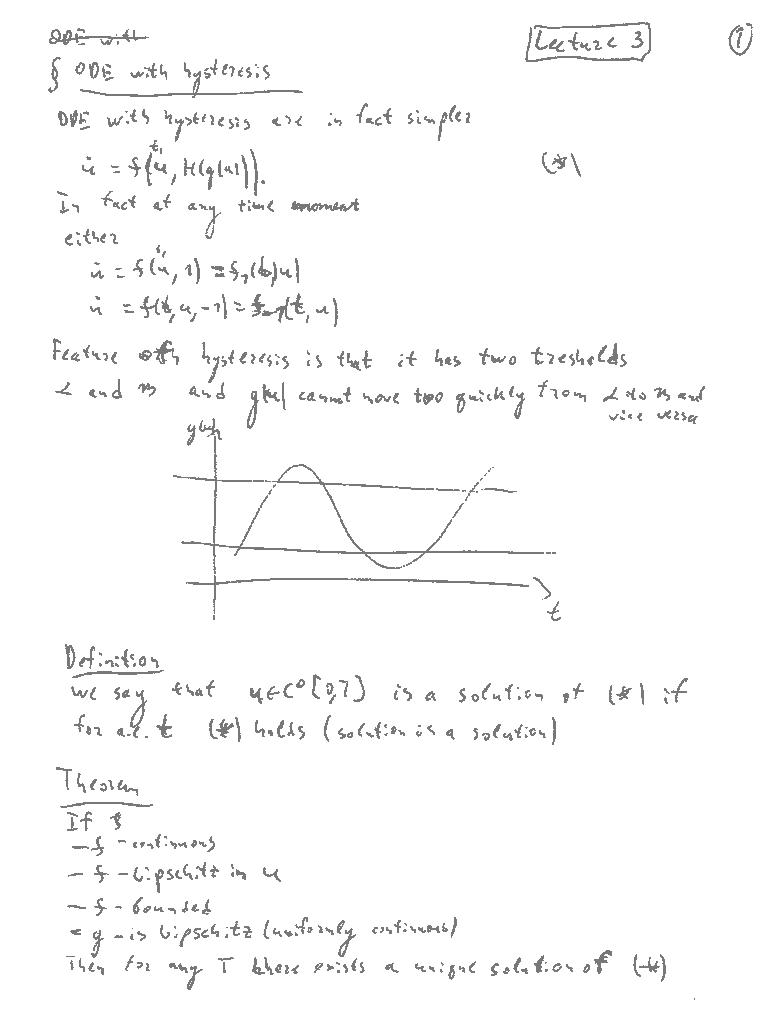 ODE with
Lecture 3
1
§ ODE with hysteresis
ODE with hysteresis are in fact simpler
u̇ = f(t, u, H(g(u))). (*)
In fact at any time moment
either
u̇ = f(t, u, 1) = f₁(t, u)
u̇ = f(t, u, -1) = f₋₁(t, u)
Feature of hysteresis is that it has two tresholds
α and β and g(u) cannot move too quickly from α to β and
vice versa
g(u)
t
Definition
we say that u∈C⁰[0,T] is a solution of (*) if
for a.e. t (*) holds (solution is a solution)
Theorem
If
- f - continuous
- f - Lipschitz in u
- f - bounded
- g - is Lipschitz (uniformly continuous)
Then for any T there exists a unique solution of (*)